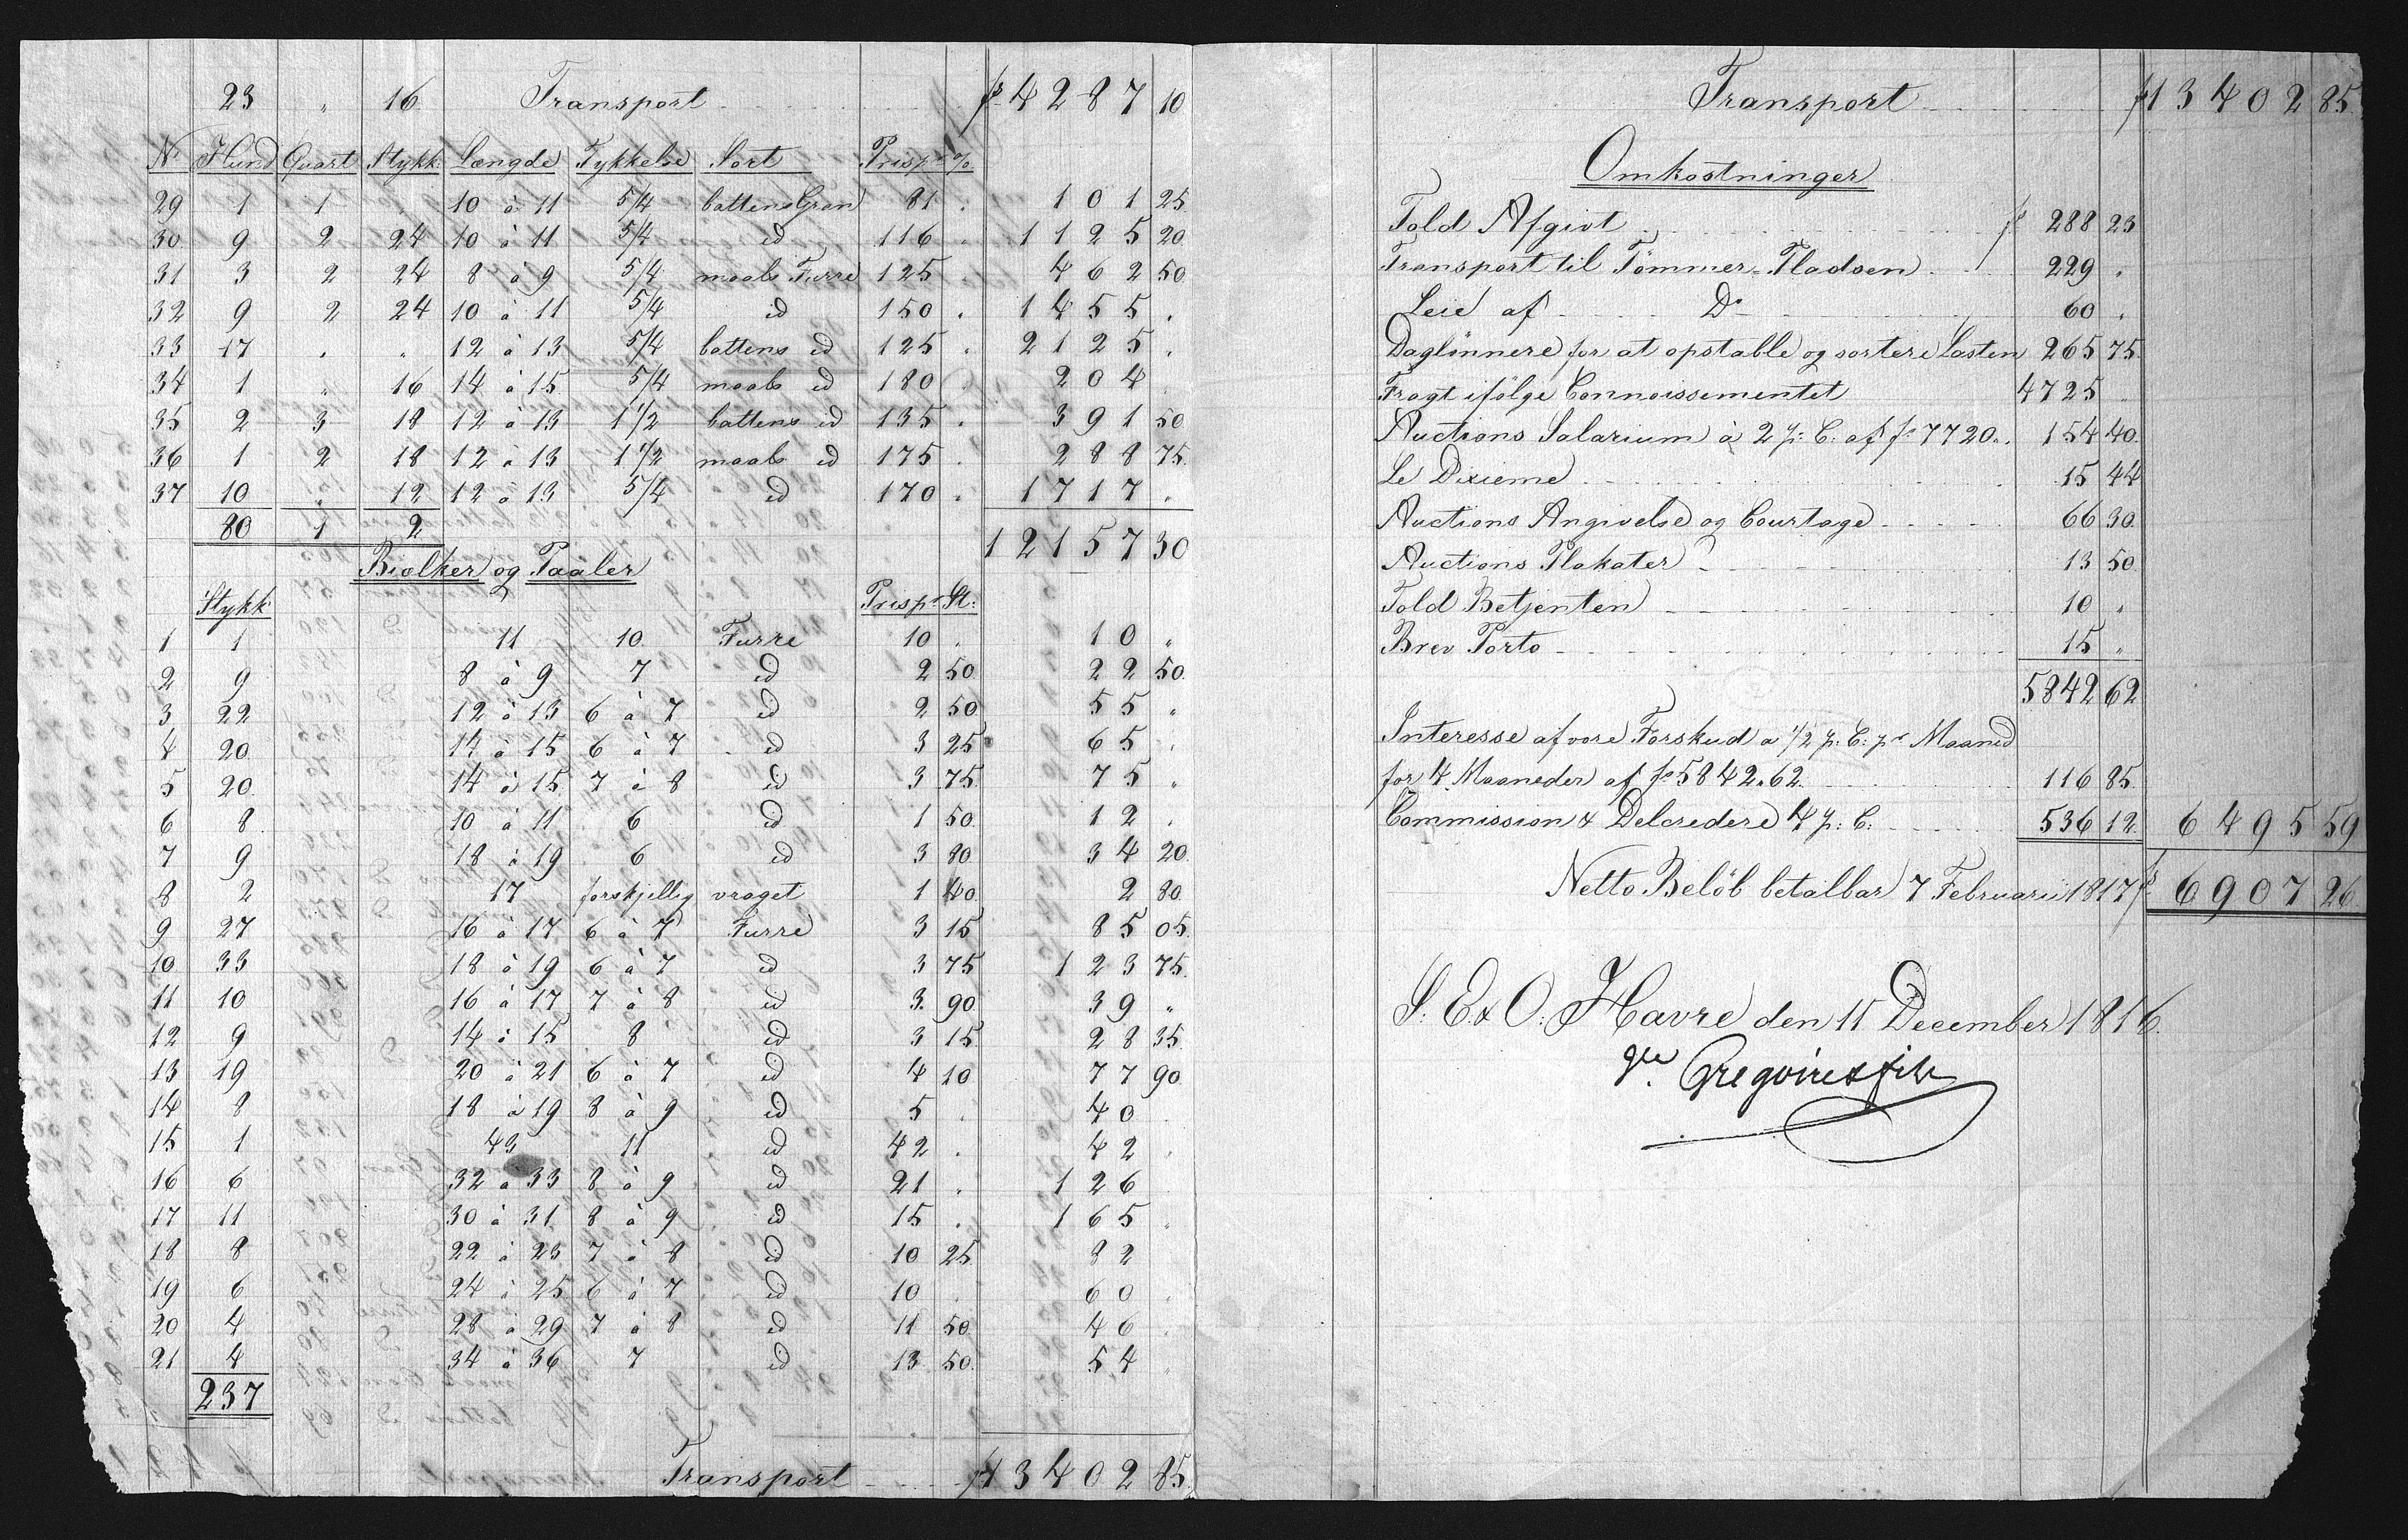 23 " 16 Transport fs 4287 10
No Hund Quart Stykk: Længde Tykkelse Sort Pris pr %
29 1 1 . 10 à 11 5/4 battens Gran 81 . 101 25
30 9 2 24 10 à 11 5/4 id 116 . 1125 20
31 3 2 24 8 à 9 5/4 maals Furre 125 . 462 50
32 9 2 24 10 à 11 5/4 id 150 . 1455 .
33 17 . " 12 à 13 5/4 battens id 125 . 2125 .
34 1 " 16 14 à 15 5/4 maals id 180 . 204 .
35 2 3 18 12 à 13 1 1/2 battens id 135 . 391 50
36 1 2 18 12 à 13 1 1/2 maals id 175 . 288 75
37 10 " 12 12 à 13 5/4 id 170 . 1717 .
80 1 2 12157 30
Biolker og Paaler
Stykk Pris pr St:
1 1 11 10 Furre 10 . 10 "
2 9 8 à 9 7 id 2 50 22 50
3 22 12 à 13 6 à 7 id 2 50 55 "
4 20 14 à 15 6 à 7 id 3 25 65 .
5 20 14 à 15 7 à 8 id 3 75 75 "
6 8 10 à 11 6 id 1 50 12 .
7 9 18 à 19 6 id 3 80 34 20
8 2 17 forskjellig vraget 1 40 2 80
9 27 16 à 17 6 à 7 Furre 3 15 85 05
10 33 18 à 19 6 à 7 id 3 75 123 75
11 10 16 à 17 7 à 8 id 3 90 39 "
12 9 14 à 15 8 id 3 15 28 35
13 19 20 à 21 6 à 7 id 4 10 77 90
14 8 18 à 19 8 à 9 id 5 . 40 .
15 1 43 11 id 42 . 42 .
16 6 32 à 33 8 à 9 id 21 . 126
17 11 30 à 31 8 à 9 id 15 . 165 .
18 8 22 à 23 7 à 8 id 10 25 82
19 6 24 à 25 6 à 7 id 10 . 60 .
20 4 28 à 29 7 à 8 id 11 50 46 .
21 4 34 à 36 7 id 13 50 54 "
237
Transport fs 13402 85
Transport fs 13402 85
Omkostninger
Told Afgivt fs 288 23
Transport til Tömmer-Pladsen 229 "
Leie af Do 60 .
Daglönnere for at opstable og sortere Lasten 265 75
Fragt ifölge Connoissementet 4725 "
Auctions Salarium à 2 p: C: af fs 7720 " 154 40
Le Dixieme 15 44
Auctions Angivelse og Courtage 66 30
Auctions Plakater 13 50
Told Betjenten 10 "
Brev Porto 15 "
5842 62
Interesse af vore Forskud a 1/2 p: C: pr Maaned
for 4 Maaneder af fs 5842.62 116 85
Commission & Delcredere 4 p: C: 536 12 6495 59
Netto Belöb betalbar 7 Februarii 1817 fs 6907 26
S: E & O: Havre den 11 December 1816.
Gregoire & fils